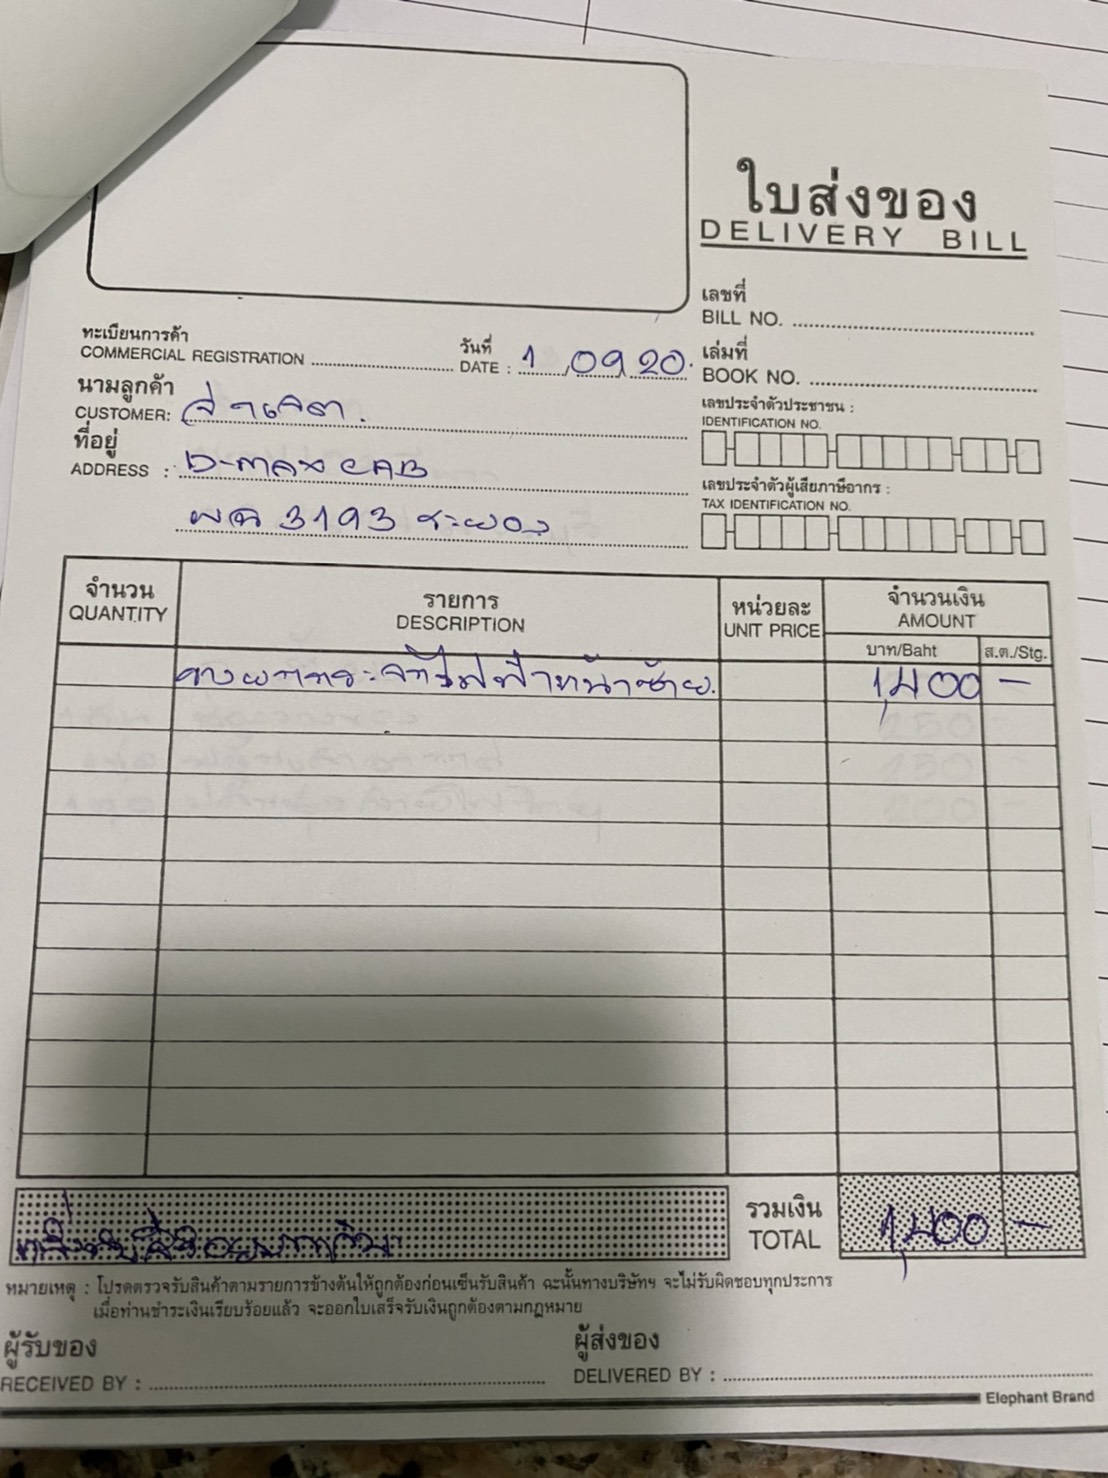 ใบส่งของ
DELIVERY BILL
เลขที่
BILL NO.
ทะเบียนการค้า
COMMERCIAL REGISTRATION
วันที่
DATE : 1 09 20.
เล่มที่
BOOK NO.
นามลูกค้า
CUSTOMER:
เลขประจำตัวประชาชน :
IDENTIFICATION NO.
ที่อยู่
ADDRESS : D-max CAB
3193 ระยอง
เลขประจำตัวผู้เสียภาษีอากร :
TAX IDENTIFICATION NO.
จำนวน
QUANTITY
รายการ
DESCRIPTION
หน่วยละ
UNIT PRICE
จำนวนเงิน
AMOUNT
บาท/Baht
ส.ต./Stg.
หน้าซ้าย. 1,400 -
รวมเงิน
TOTAL 1,400 -
หมายเหตุ : โปรดตรวจรับสินค้าตามรายการข้างต้นให้ถูกต้องก่อนเซ็นรับสินค้า ฉะนั้นทางบริษัทฯ จะไม่รับผิดชอบทุกประการ
เมื่อท่านชำระเงินเรียบร้อยแล้ว จะออกใบเสร็จรับเงินถูกต้องตามกฎหมาย
ผู้รับของ
RECEIVED BY :
ผู้ส่งของ
DELIVERED BY :
Elephant Brand